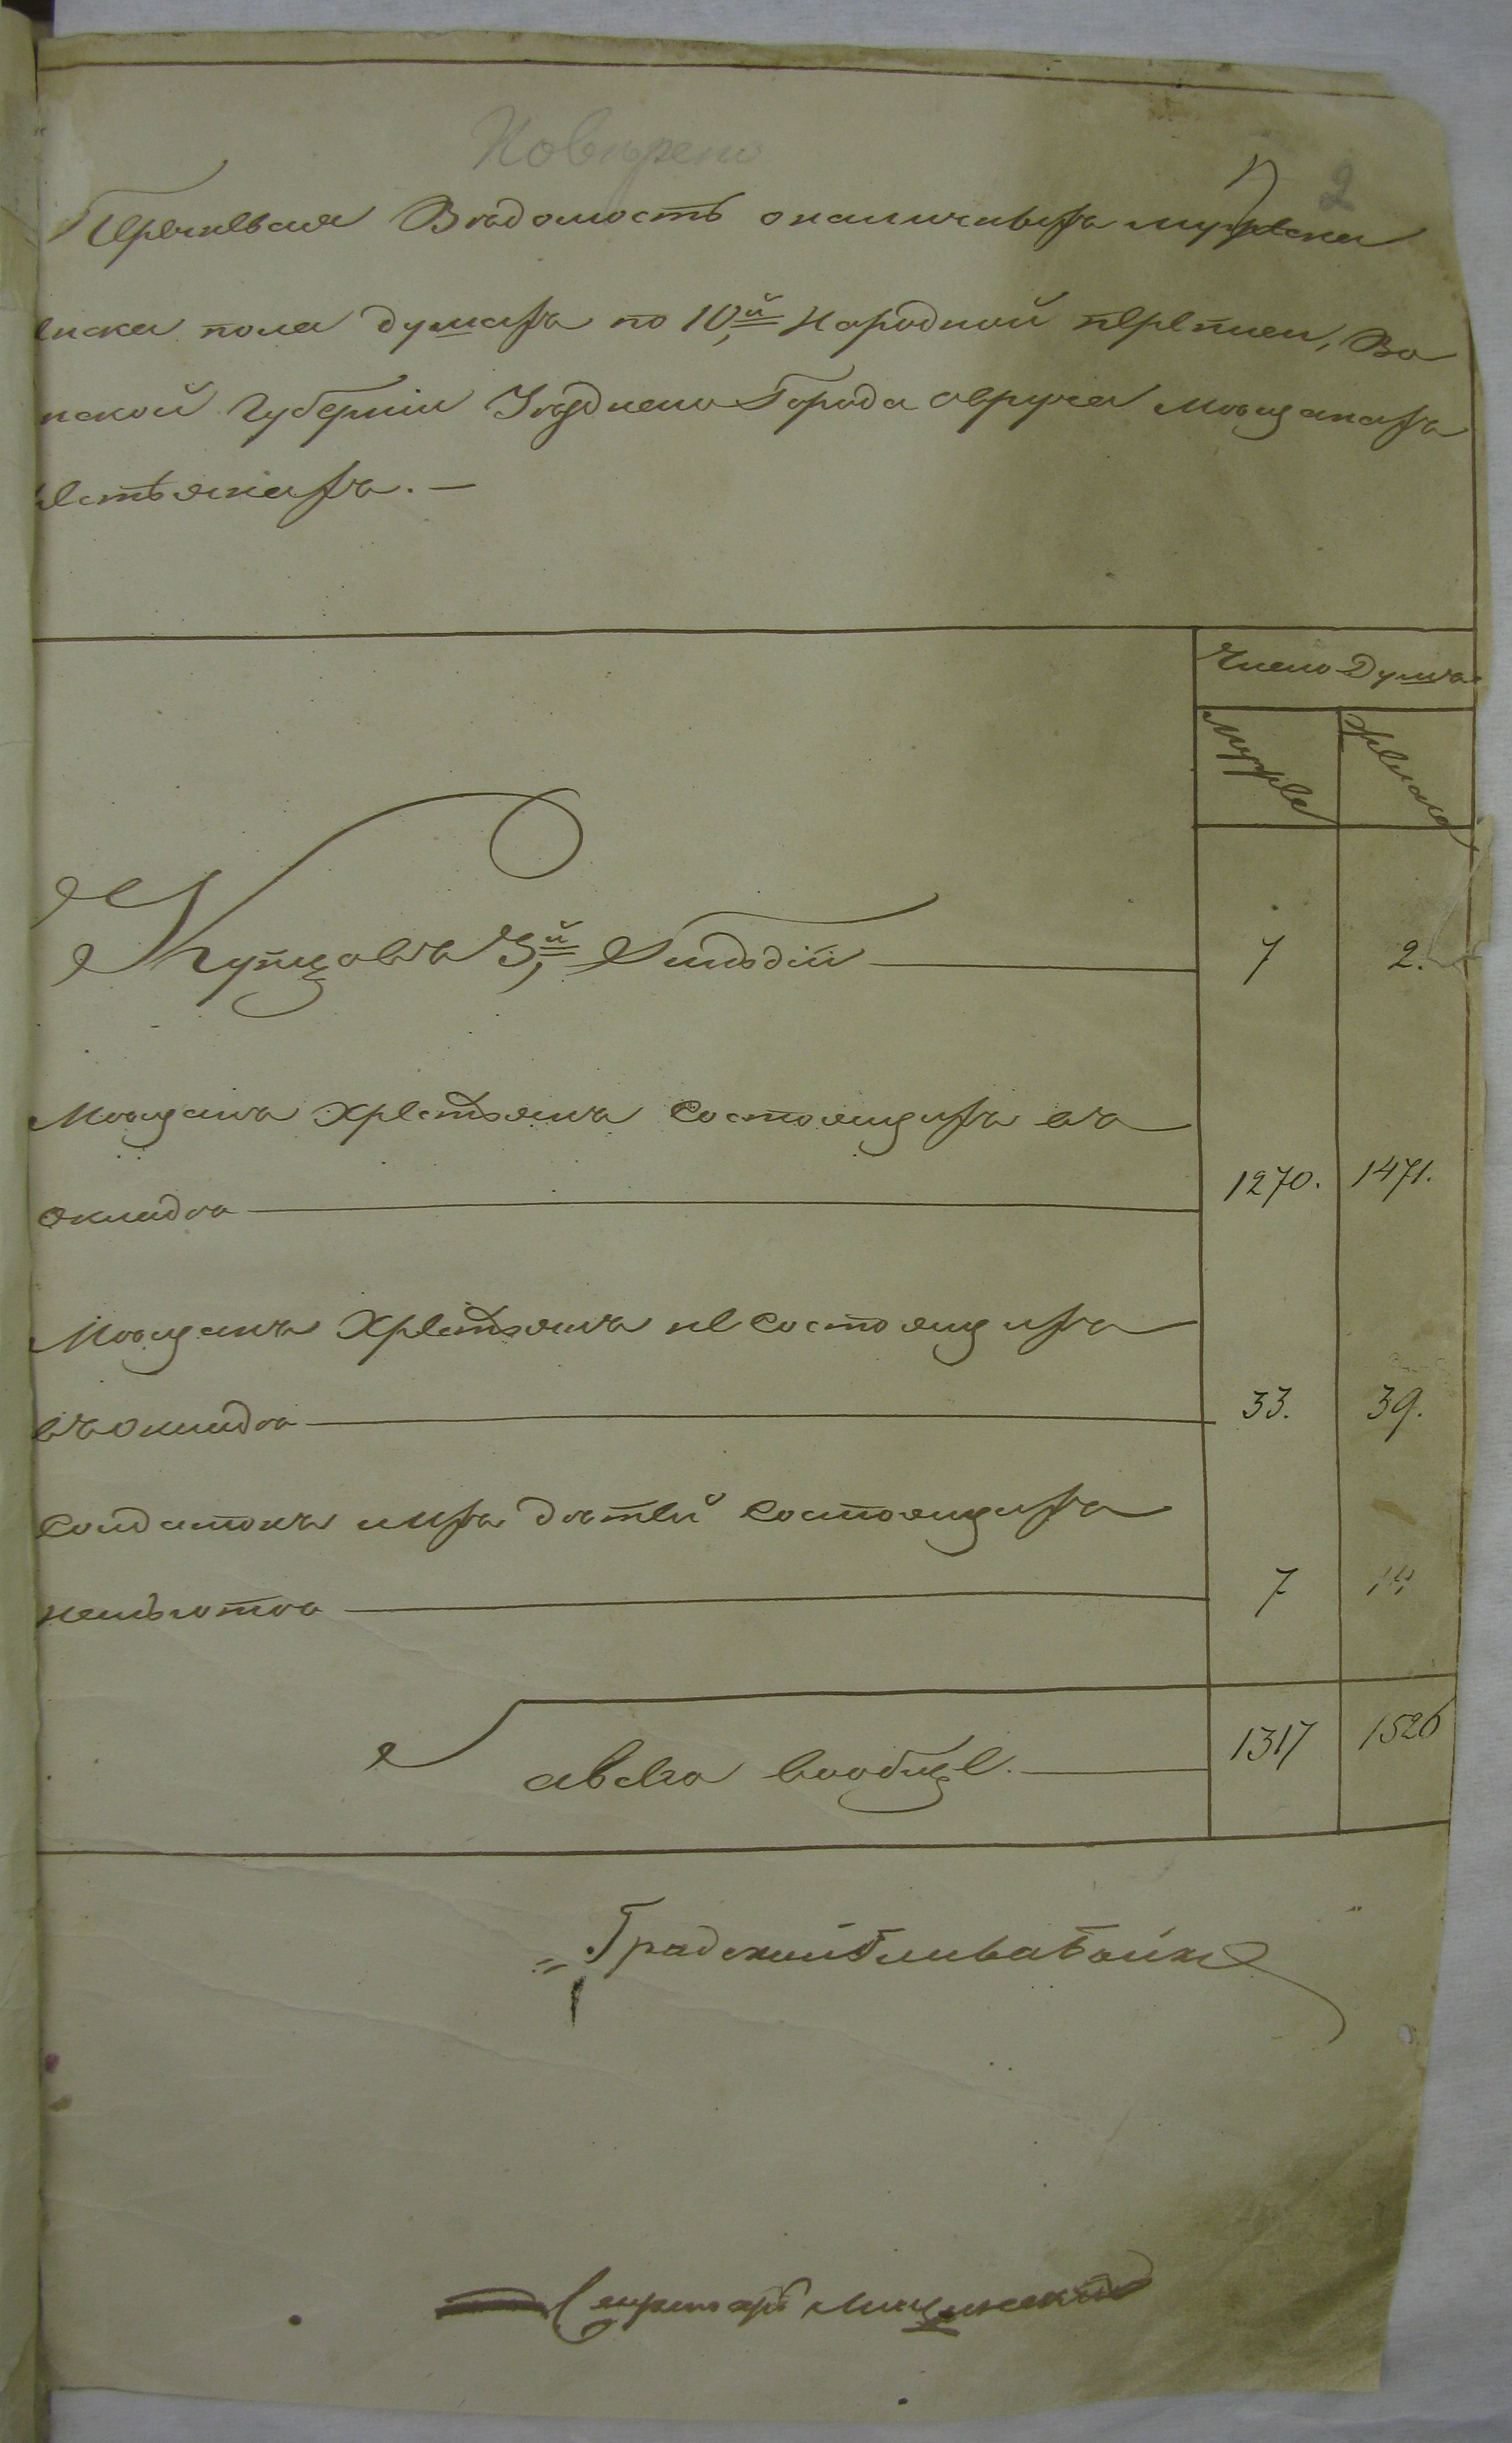 Повѣрено
2
Перечневая Вѣдомость оналичныхъ мужеска
енска пола душахъ по 10й Народной переписи, Во
нской Губерніи Уѣзднаго Города овруча Мѣщанахъ
естьянахъ. —
Число Душъ
мужска женска
Купцовъ 3й Гильдіи 7 2.
Мѣщанъ Христьянъ состоящихъ въ
окладѣ 1270. 1471.
Мѣщанъ Христьянъ не состоящихъ
въ окладѣ 33. 39.
Солдатокъ ихъ дѣтей состоящихъ
нальготѣ 7 14
авсѣго вообще. 1317 1526
Градский Глива
Секретарь